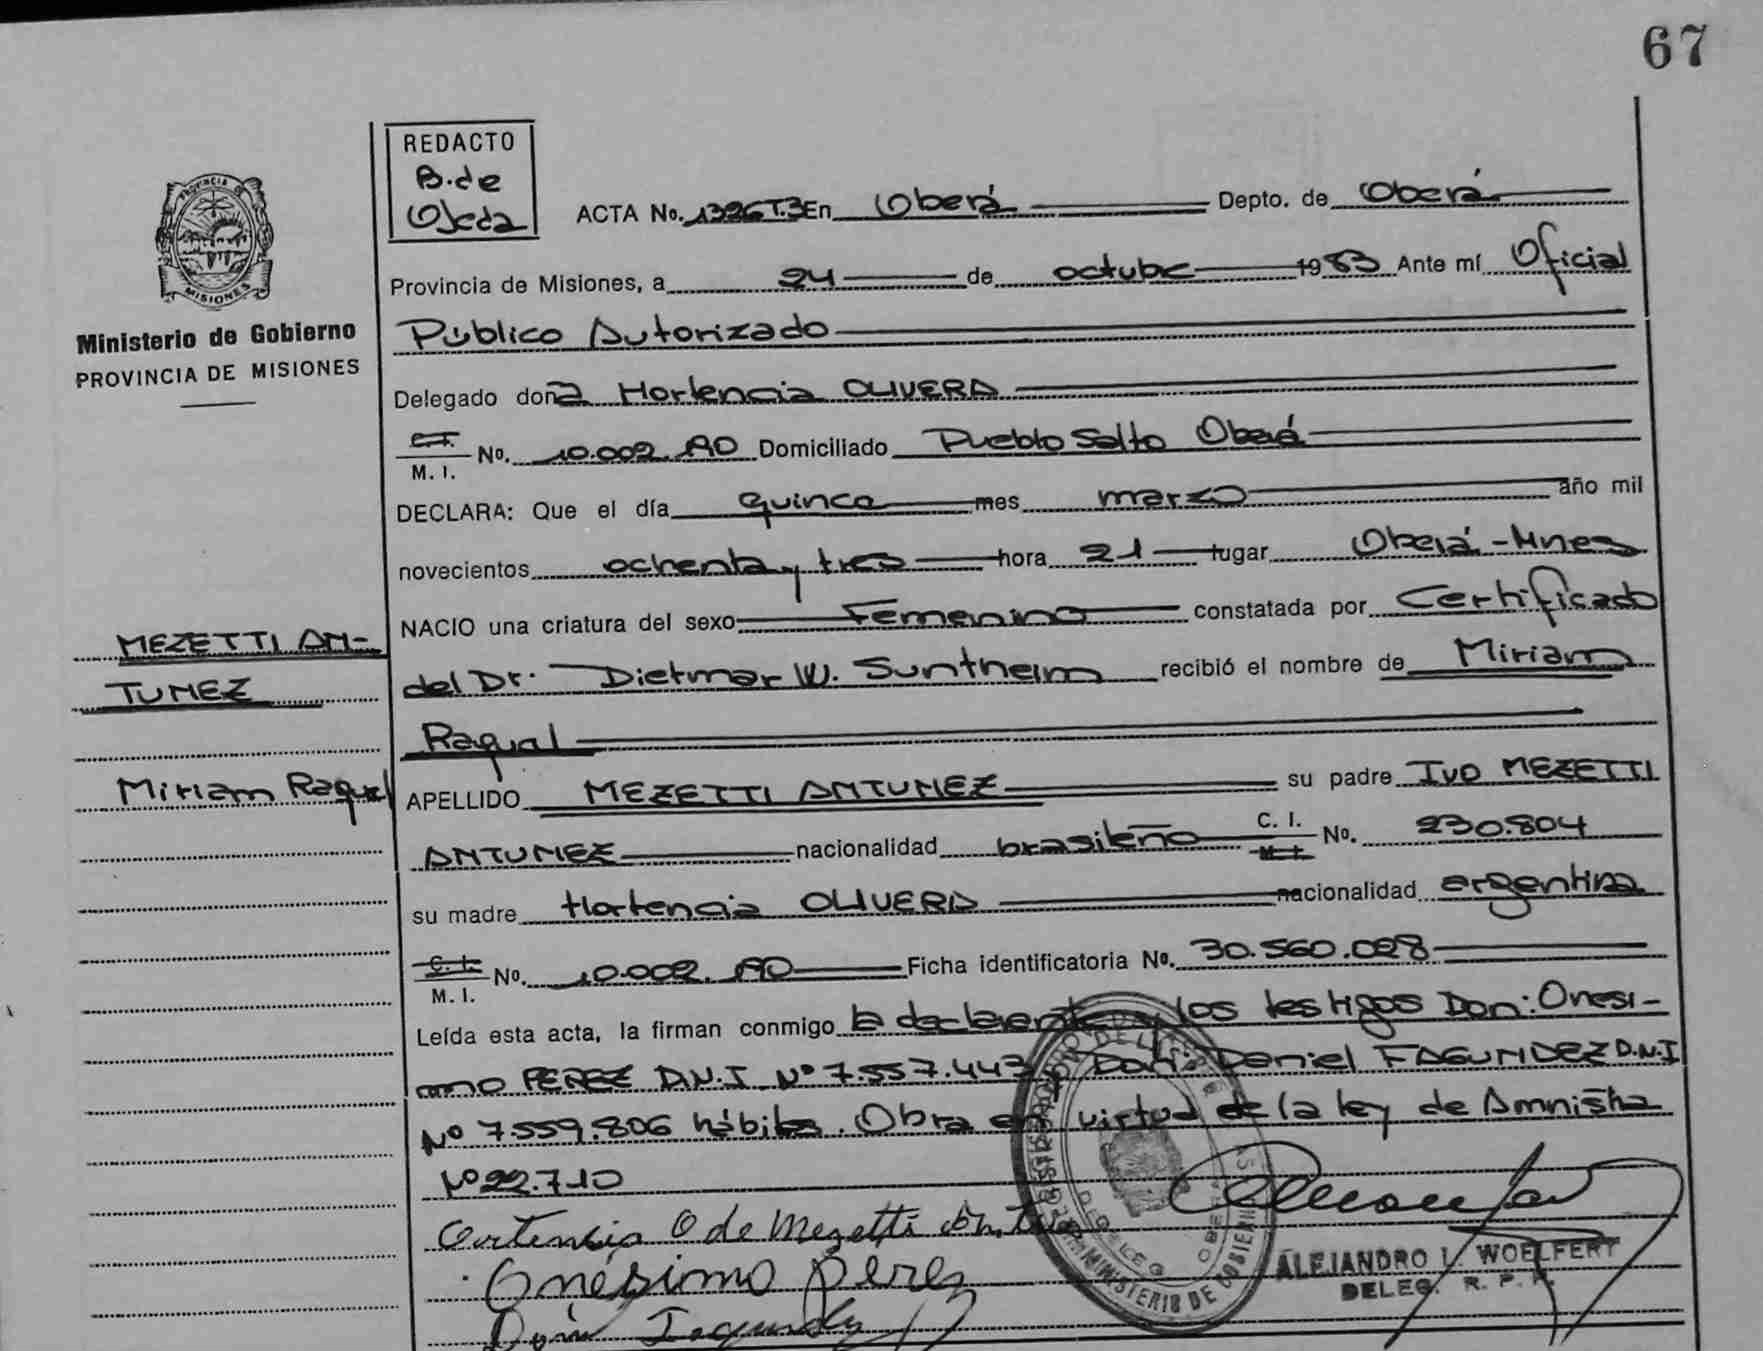 67
REDACTO
B. de
Ojeda
PROVINCIA DE
MISIONES
Ministerio de Gobierno
PROVINCIA DE MISIONES
ACTA No. 1326 T.3 En Oberá Depto. de Oberá
Provincia de Misiones, a 24 de octubre 1983 Ante mí Oficial
Público Autorizado
Delegado doña Hortencia OLIVERA
C.I. M. I. No. 10.002.190 Domiciliado Pueblo Salto Oberá
DECLARA: Que el día quince mes marzo año mil
novecientos ochenta y tres hora 21 lugar Oberá - Mnes
NACIO una criatura del sexo Femenino constatada por Certificado
MEZETTI AN-
TUNEZ
del Dr. Dietmar W. Suntheim recibió el nombre de Miriam
Raquel
Miriam Raquel
APELLIDO MEZETTI ANTUNEZ su padre IVO MEZETTI
ANTUNEZ nacionalidad brasileño C. I. M. I. No. 230.804
su madre Hortencia OLIVERA nacionalidad argentina
C. I. M. I. No. 10.002.190 Ficha identificatoria No. 30.560.028
Leída esta acta, la firman conmigo la declarante y los testigos Don: Onesi-
mo PEREZ D.N.I Nº 7.557.443 y Don: Daniel FAGUNDEZ D.N.I
Nº 7.559.806 hábiles. Obra en virtud de la ley de Amnistia
Nº 22.710
Ortencia O de Mezetti
Onésimo Peres
MINISTERIO DE GOBIERNO
ALEJANDRO I. WOELFERT
DELEG. R. P.